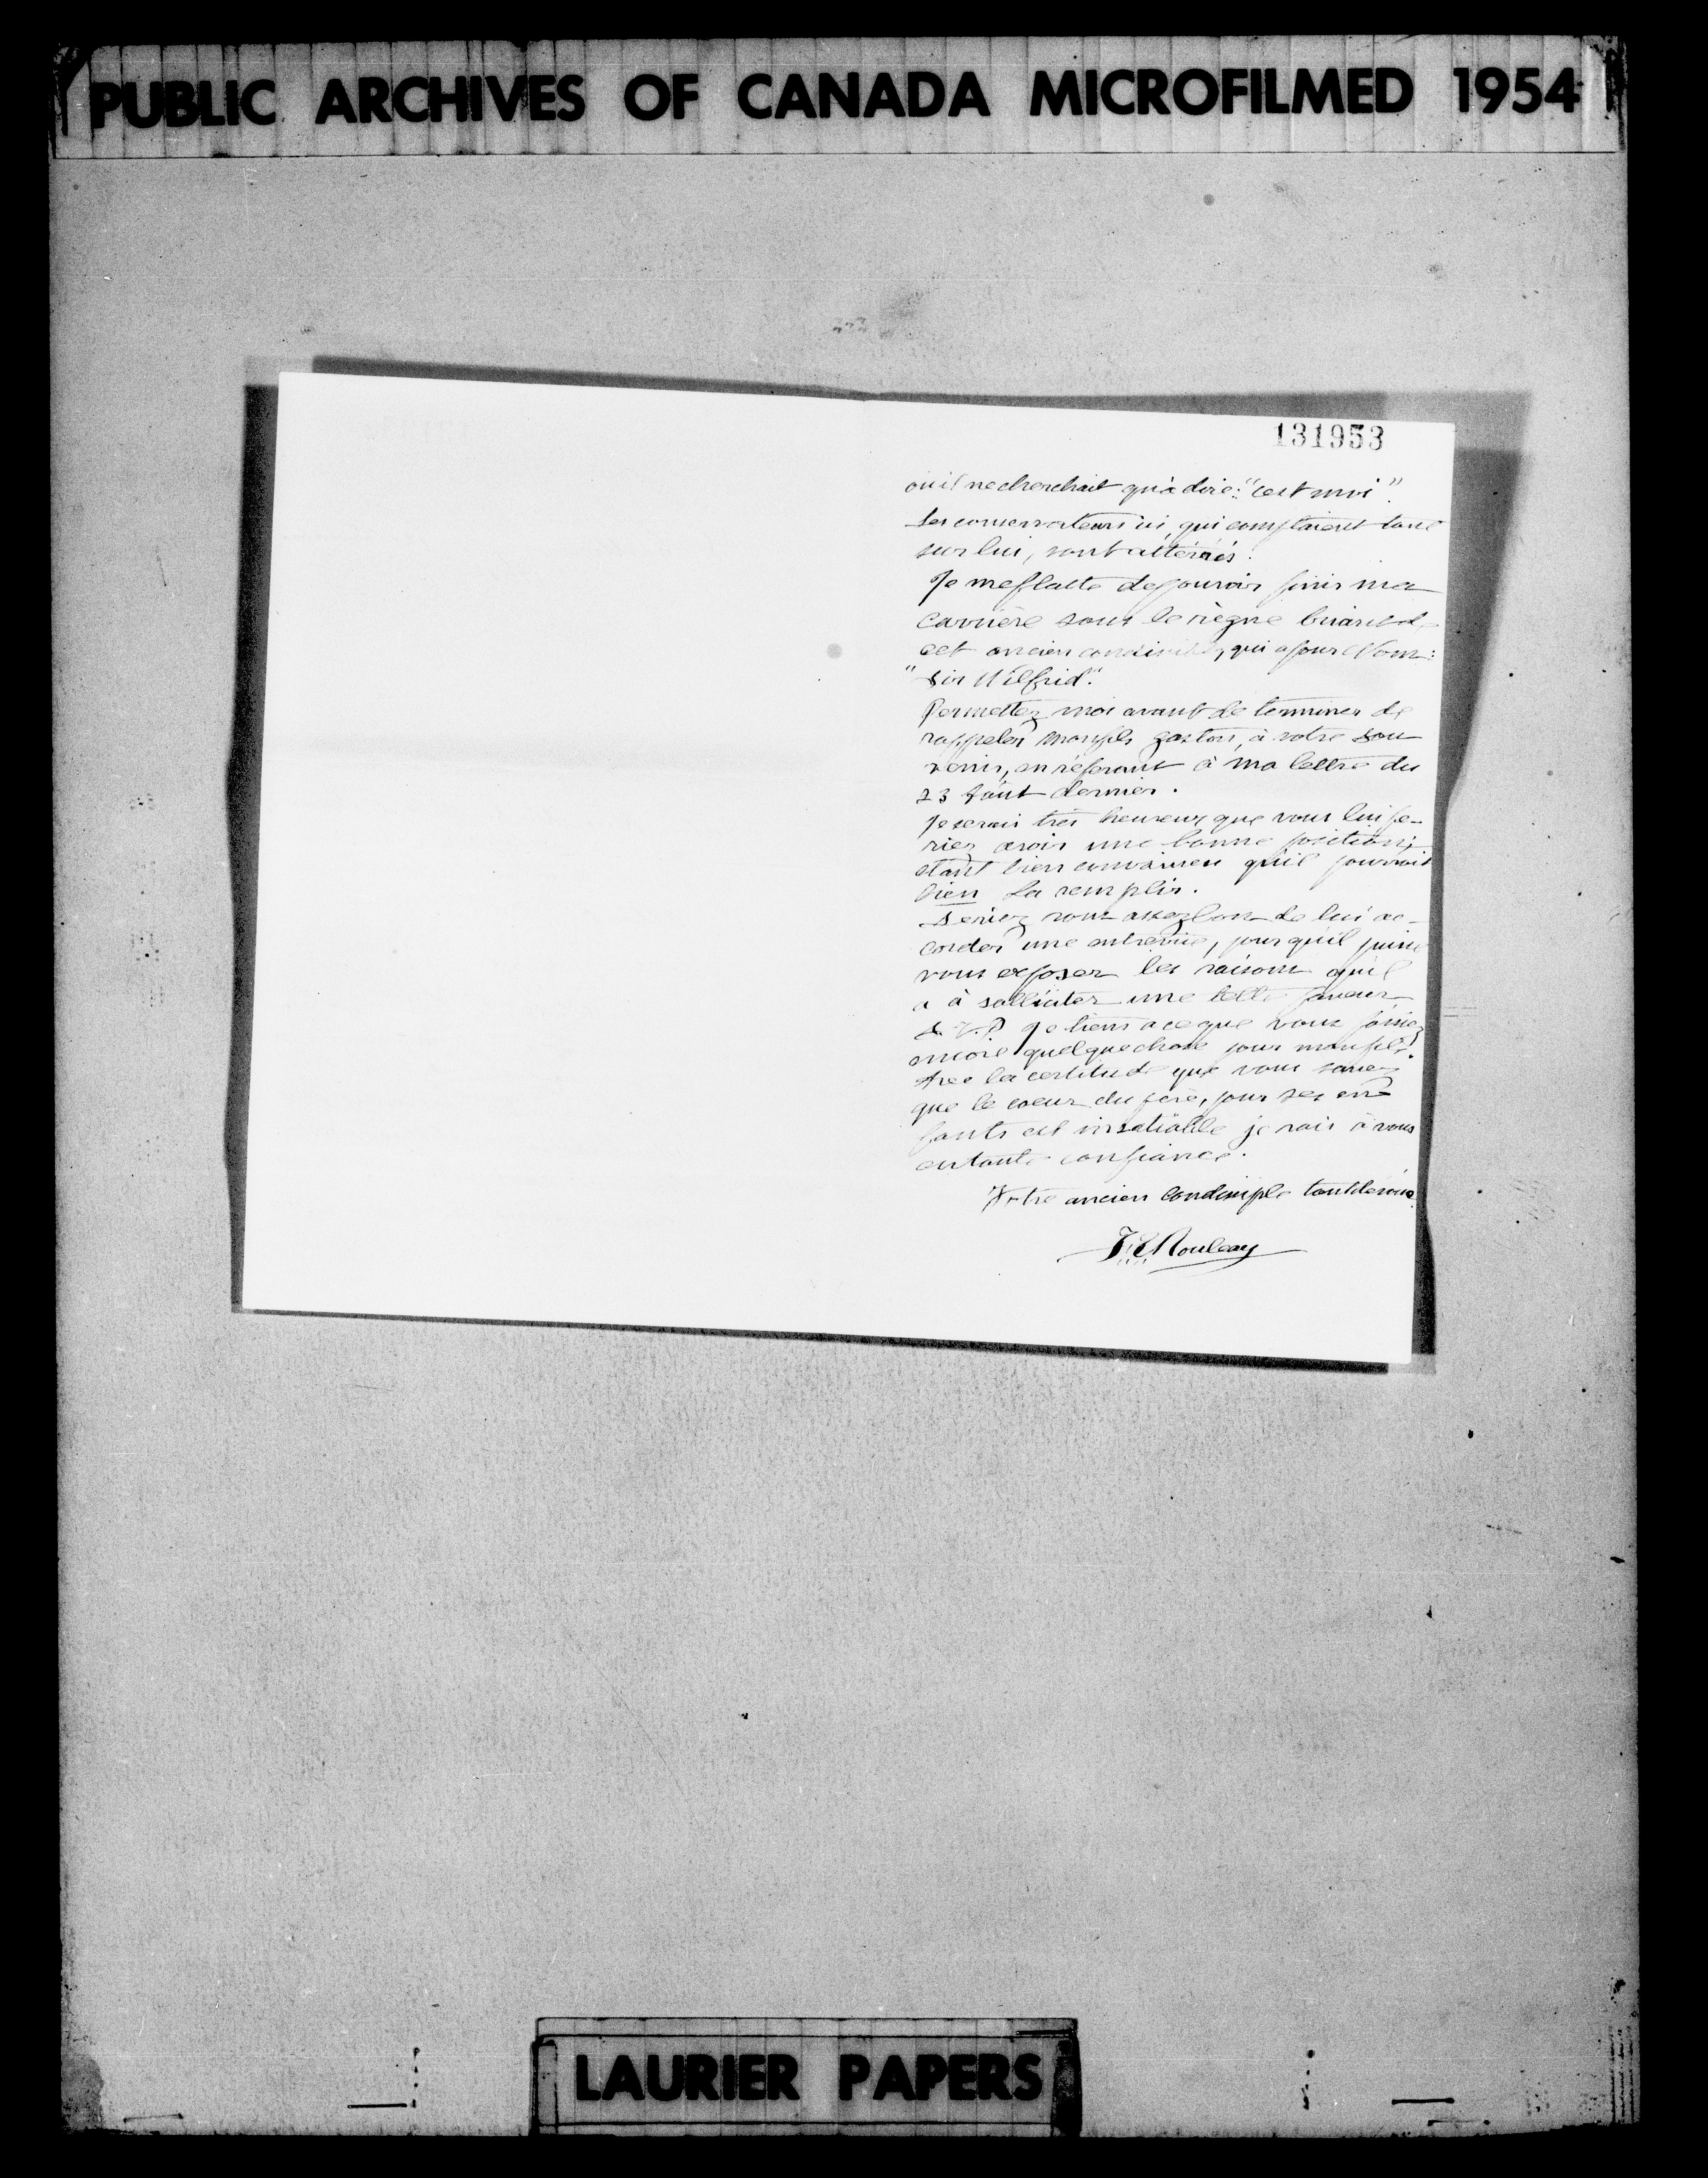 PUBLIC ARCHIVES OF CANADA MICROFILMED 1954
131953
ou il ne cherchait qu'à dire: "c'est moi".
Les conservateurs ici, qui comptaient tant
sur lui, sont attérrés.
Je me flatte de pouvoir finir ma
carrière sous le règne
cet ancien qui a pour Nom:
"Sir Wilfrid".
Permettez moi avant de terminer de
rappeler mon fils gaston, à votre sou
venir, en référant à ma lettre du
23 Août dernier.
Je serais très heureux que vous lui fe-
riez avoir une bonne position;
étant bien convaincu qu'il pourrait
bien la remplir.
Seriez vous assez bon de lui ac-
corder une entrevue, pour qu'il puisse
vous exposer les raisons qu'il
a à solliciter une telle faveur
S.V.P Je tiens a ce que vous fassiez
encore quelque chose pour mon fils.
Avec la certitude que vous savez
que le coeur du père, pour ses en
fants est insatiable je vais à vous
en toute confiance.
Votre ancien condisciple tout dévoué
Rouleau
LAURIER PAPERS